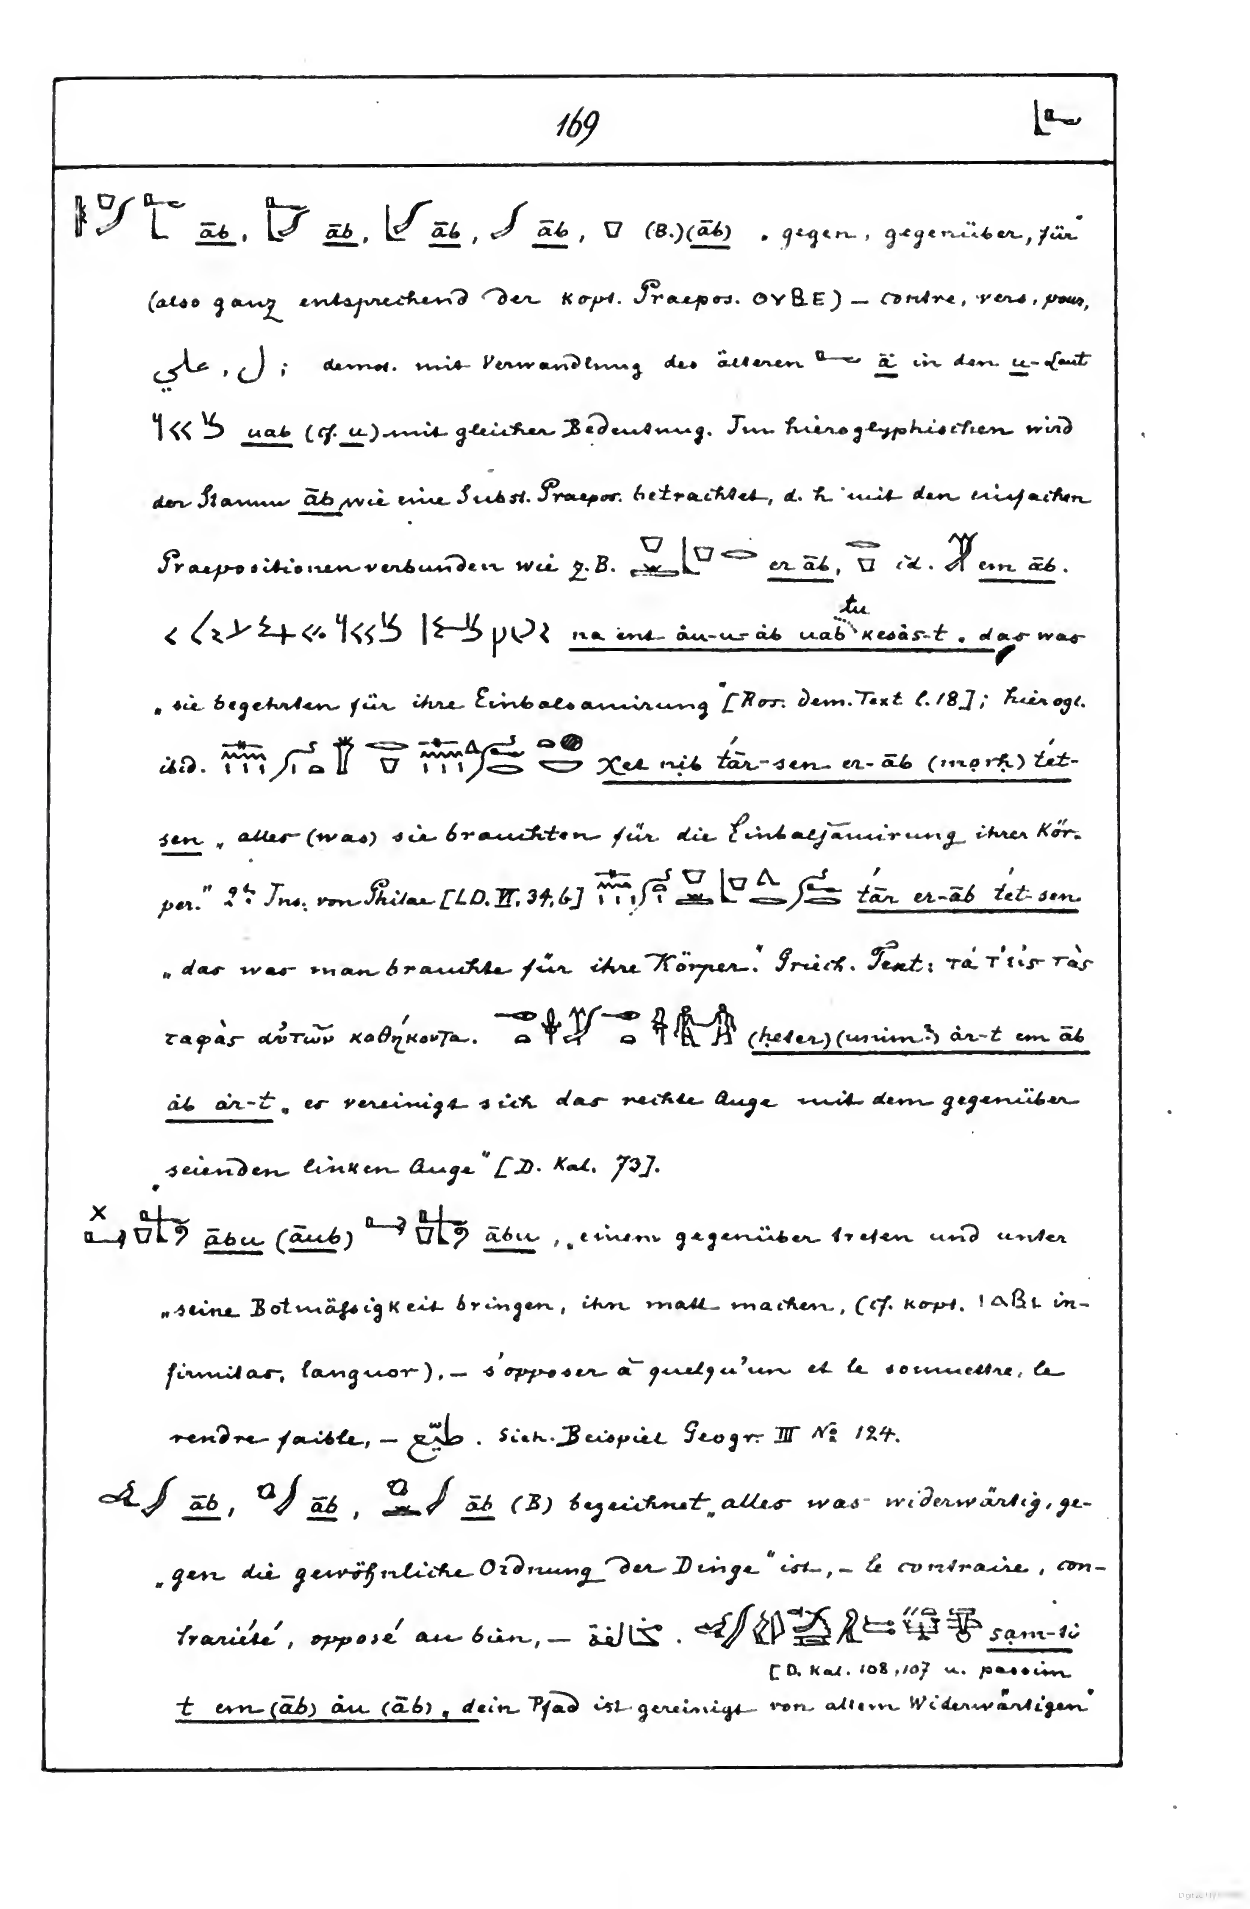 169
āb, āb, āb, āb, (B.)(āb) „gegen, gegenüber, für“
(also ganz entsprechend der kopt. Praepos. ΟΥΒΕ) – contre, vers, pour,
ل, علي; demot. mit Verwandlung des älteren ā in den u-Laut
uab (cf. u) mit gleicher Bedeutung. Im hieroglyphischen wird
der Stamm āb wie eine Subst. Praepos. betrachtet, d. h. mit den einfachen
Praepositionen verbunden wie z. B. er āb, id. em āb.
tu
na ent àu-u-àb uab kesàs-t „das was
„sie begehrten für ihre Einbalsamirung“ [Ros. dem. Text l. 18]; hierogl.
ibid. χet nib tār-sen er-āb (morḥ) tet-
sen „alles (was) sie brauchten für die Einbalsamirung ihrer Kör-
per.“ 2te Ins. von Philae [LD. VI, 34, b] tār er-āb tet-sen
„das was man brauchte für ihre Körper“. Griech. Text: τά τ'εἰς τὰς
ταφὰς αὐτῶν καθήκοντα. (ḥeter) (unim?) àr-t em āb
àb àr-t „es vereinigt sich das rechte Auge mit dem gegenüber
seienden linken Auge“ [D. Kal. 73].
ābu (āub) ābu, „einem gegenüber treten und unter
„seine Botmäßigkeit bringen, ihn matt machen, (cf. kopt. ΙΑΒΙ in-
firmitas, languor), – s'opposer à quelqu'un et le soumettre, le
rendre faible, – . Sieh. Beispiel Geogr. III No 124.
āb, āb, āb (B) bezeichnet „alles was widerwärtig, ge-
„gen die gewöhnliche Ordnung der Dinge“ ist, – le contraire, con-
trariété, opposé au bien, – . sam-ti
[D. Kal. 108, 107 u. passim
t em (āb) àu (āb) „dein Pfad ist gereinigt von allem Widerwärtigen“